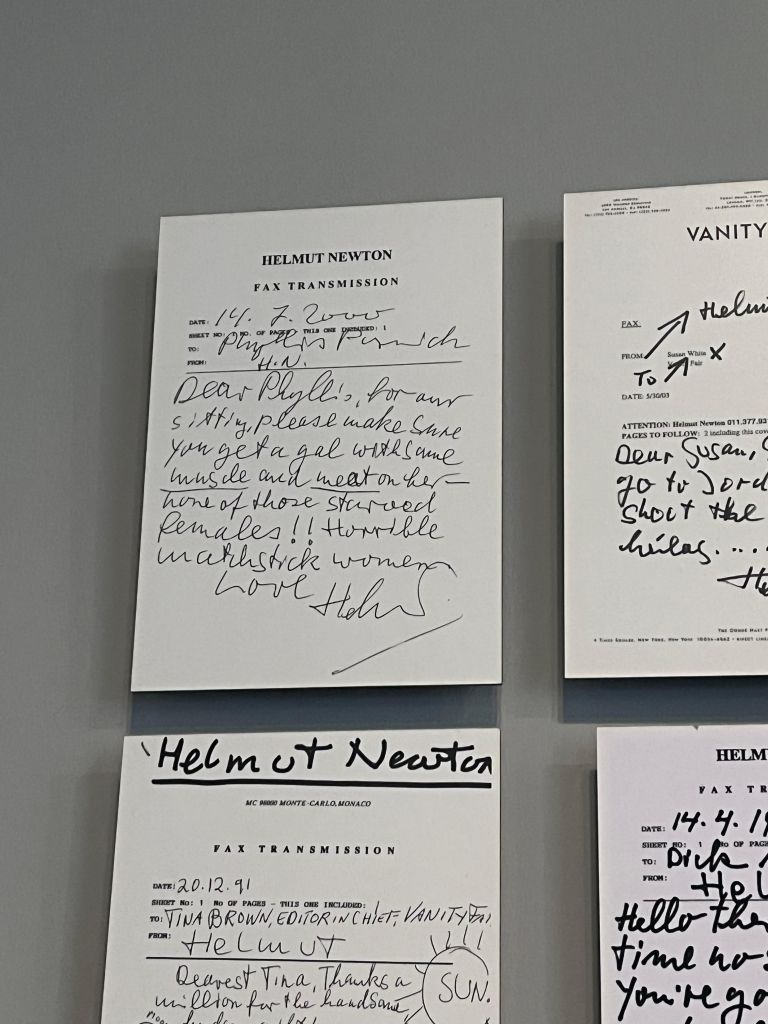 HELMUT NEWTON
FAX TRANSMISSION
DATE: 14. 7. 2000
SHEET NO: NO. OF PAGES THIS ONE INCLUDED: 1
TO: Phyllis
FROM: H.N.
Dear Phyllis, for our
sitting, please make sure
you get a gal with some
muscle and meat on her –
none of those starved
females!! Horrible
matchstick women
Love Helmut
VANITY
FAX
Helmu
FROM Susan White X
Fair
To
DATE: 5/30/03
ATTENTION: Helmut Newton 011.377.93
PAGES TO FOLLOW: 2 including this cov
Dear Susan,
go to Jord
shoot the
4 TIMES SQUARE, NEW YORK, NEW YORK 10036
Helmut Newton
MC 98000 MONTE-CARLO, MONACO
FAX TRANSMISSION
DATE: 20.12.91
SHEET NO: 1 No OF PAGES – THIS ONE INCLUDED:
TO: TINA BROWN, EDITOR IN CHIEF, VANITY FAI
FROM: Helmut
Dearest Tina, Thanks a
million for the handsome
SUN.
HELM
FAX TR
DATE: 14.4.19
SHEET NO: 1 No OF PAGE
TO: Dick
FROM: Hel
Hello the
time no s
You're go